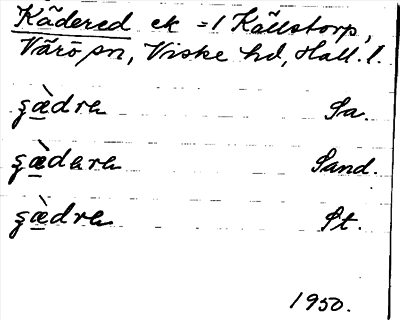 Kädered ek =1 Källstorp,
Värö sn, Viske hd, Hall. l.
ȿæ̀dre Sa.
ȿæ̀dere Sand.
ȿæ̀dre St.
1950.